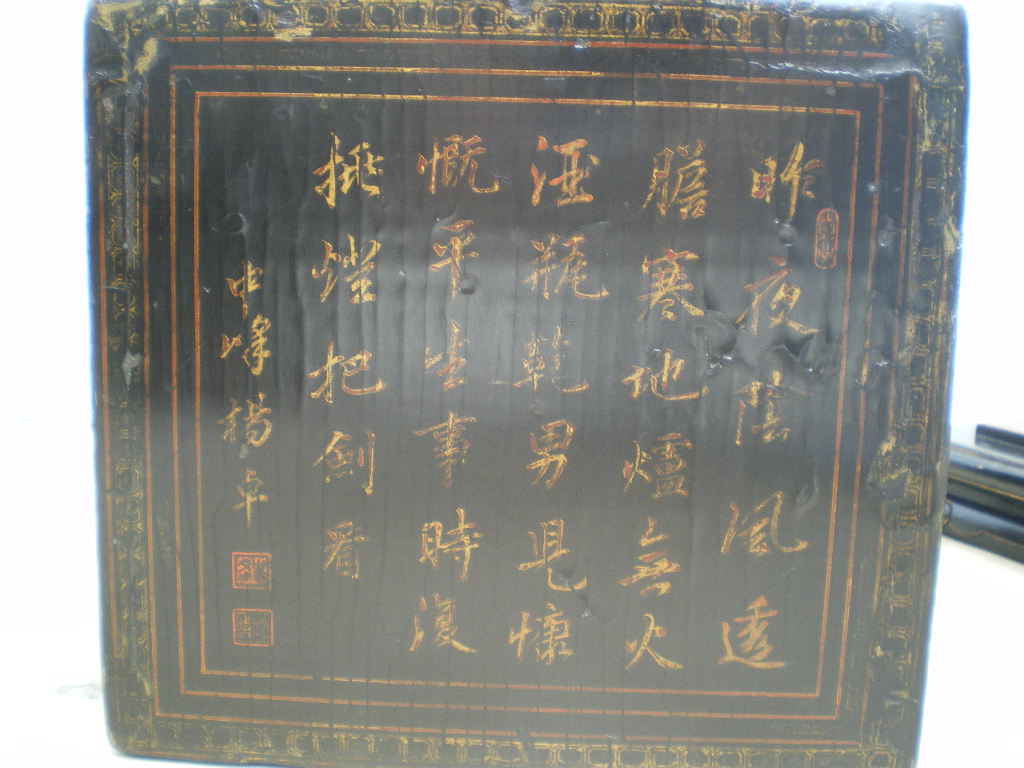 昨夜陰風透
膽寒地爐無火
酒瓶乾男兒慷
慨平生事時復
挑燈把劍看
中峰楊卓